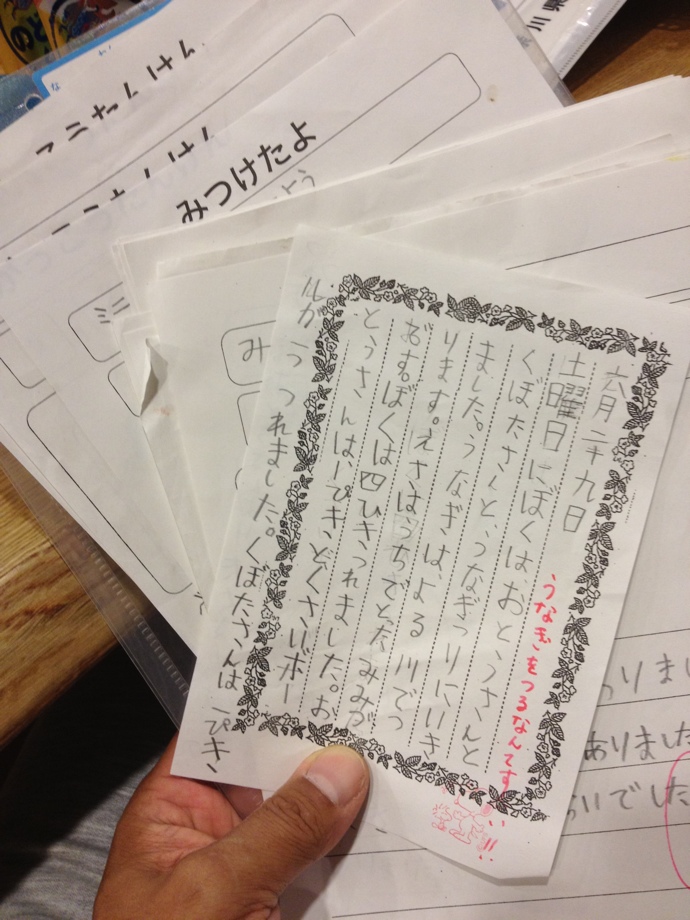 みつけたよ
六月二十九日
土曜日にぼくは、おとうさんと
くぼたさんと、うなぎつりにいき
ました。うなぎは、よる 川でつ
ります。えさは、うちでとったみみづ
おす。ぼくは四ひきつれました。お
とうさんは、一ぴき、どくさりボー
ルが 一つ つれました。くぼたさんは 一ぴき、
うなぎをつるなんてす
!!
み
ありました
いでした
川県